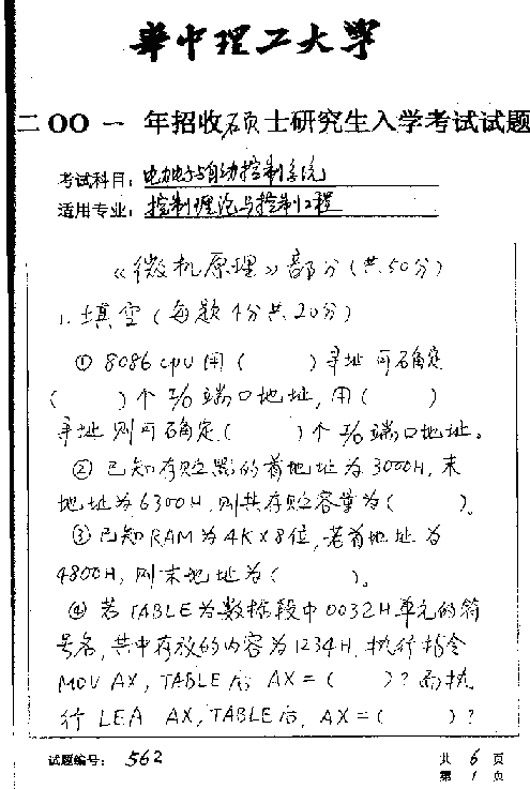 華中理工大学
二00一 年招收硕士研究生入学考试试题
考试科目: 电力电子与自动控制系统
适用专业: 控制理论与控制工程
《微机原理》部分(共50分)
1. 填空(每题4分共20分)
① 8086 cpu 用( )寻址可确定
( )个I/o端口地址,用( )
寻址则可确定( )个I/o端口地址。
② 已知存贮器的首地址为3000H,末
地址为6300H,则其存贮容量为( )。
③ 已知RAM为4K×8位,若首地址为
4800H,则末地址为( )。
④ 若TABLE为数据段中0032H单元的符
号名,其中存放的内容为1234H,执行指令
MOV AX, TABLE后 AX=( )?而执
行LEA AX, TABLE后, AX=( )?
试题编号: 562
共 6 页
第 1 页